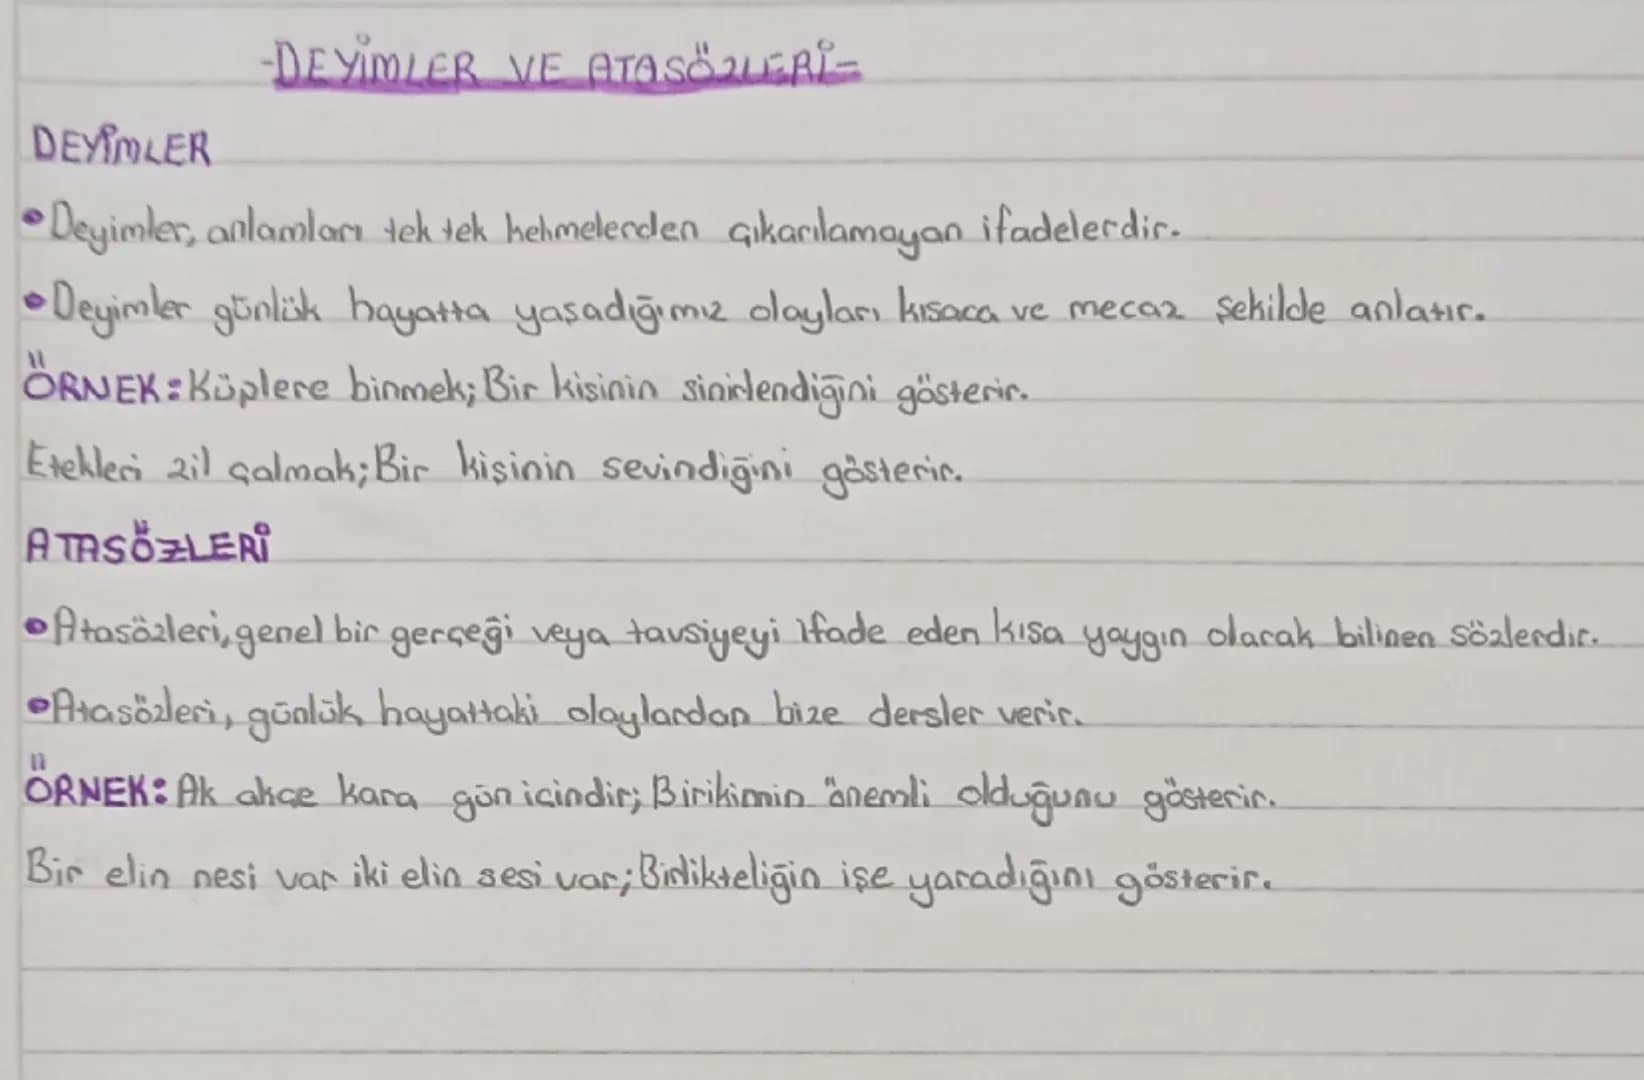 -DEYİMLER VE ATASÖZLERİ-
DEYİMLER
• Deyimler, anlamları tek tek kelimelerden çıkarılamayan ifadelerdir.
• Deyimler günlük hayatta yaşadığımız olayları kısaca ve mecaz şekilde anlatır.
ÖRNEK: Küplere binmek; Bir kişinin sinirlendiğini gösterir.
Etekleri zil çalmak; Bir kişinin sevindiğini gösterir.
ATASÖZLERİ
• Atasözleri, genel bir gerçeği veya tavsiyeyi ifade eden kısa yaygın olarak bilinen sözlerdir.
• Atasözleri, günlük hayattaki olaylardan bize dersler verir.
ÖRNEK: Ak akçe kara gün içindir; Birikimin önemli olduğunu gösterir.
Bir elin nesi var iki elin sesi var; Birlikteliğin işe yaradığını gösterir.